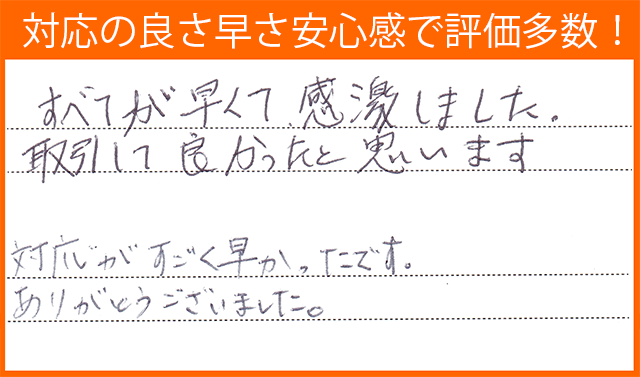 対応の良さ早さ安心感で評価多数！
すべてが早くて、感激しました。
取引して良かったと思います
対応がすごく早かったです。
ありがとうございました。